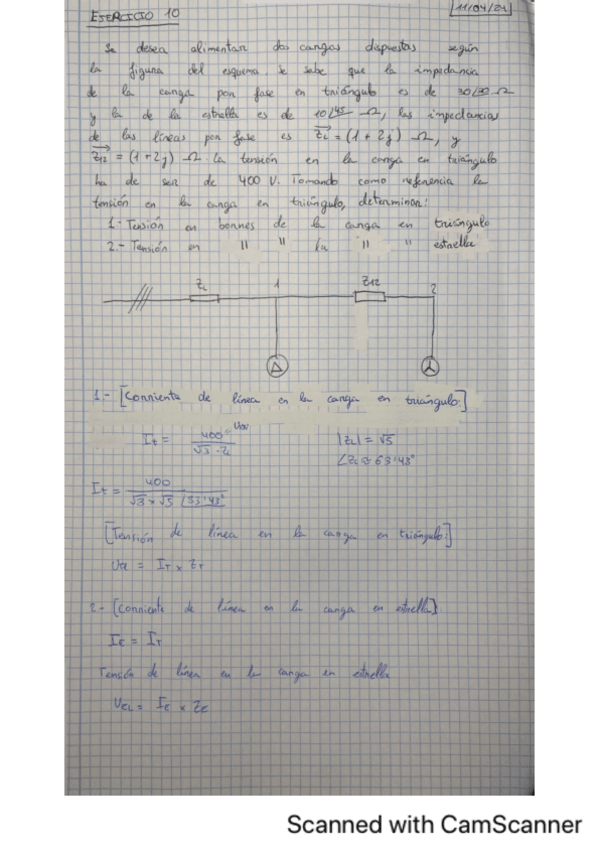 EJERCICIO 10
11/04/24
Se desea alimentar dos cargas dispuestas según
la figura del esquema, se sabe que la impedancia
de la carga por fase en triángulo es de 30/30 Ω
y la de la estrella es de 10/45 Ω, las impedancias
de las líneas por fase es ZL = (1 + 2j) Ω, y
Z12 = (1 + 2j) Ω. La tensión en la carga en triángulo
ha de ser de 400 V. Tomando como referencia la
tensión en la carga en triángulo, determinar:
1.- Tensión en bornes de la carga en triángulo
2.- Tensión en " " la " " estrella
ZL 1 Z12 2
1- [Corriente de línea en la carga en triángulo:]
It = 400 / √3 · ZL
|ZL| = √5
∠ZL ≈ 63'43°
It = 400 / √3 × √5 /53'43°
[Tensión de línea en la carga en triángulo:]
= IT × ZT
2- [Corriente de línea en la carga en estrella]
IE = IT
Tensión de línea en la carga en estrella
UEL = IE × ZE
Scanned with CamScanner